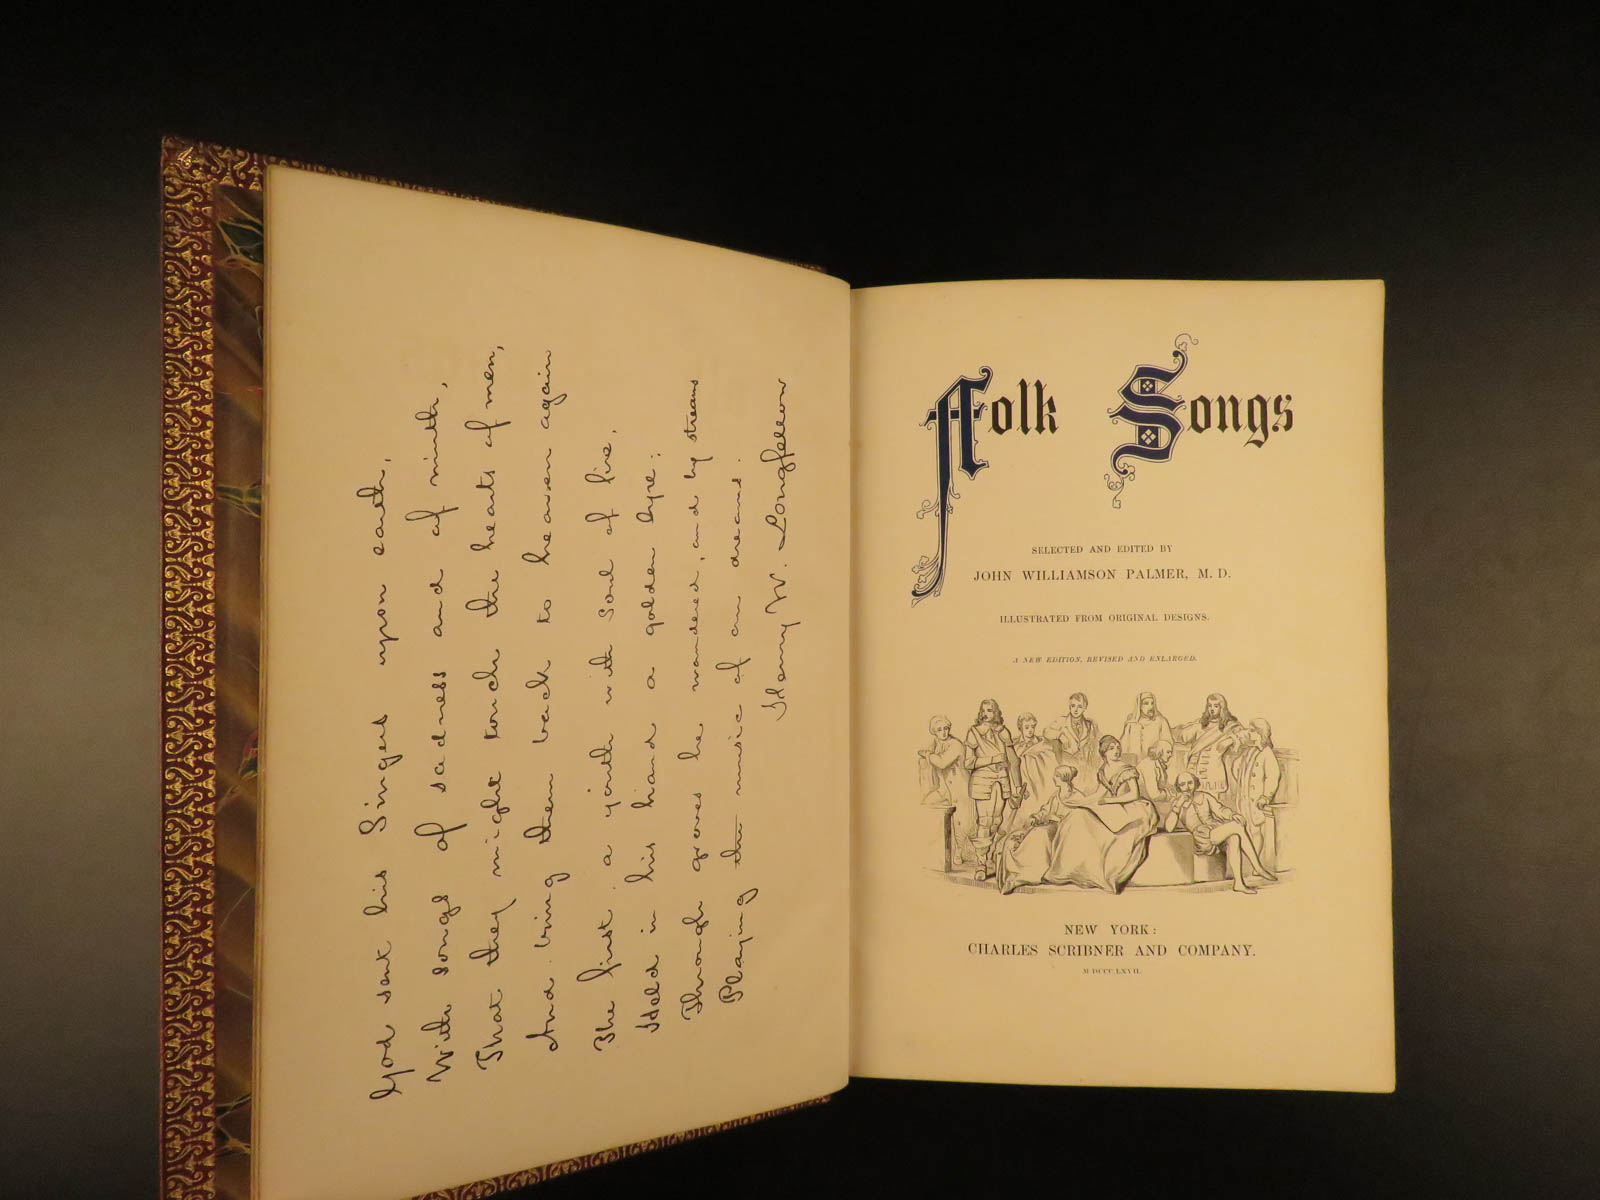 God sent his Singers upon earth,
With songs of sadness and of mirth,
That they might touch the hearts of men,
And bring them back to heaven again
The first a youth with soul of fire,
Held in his hand a golden lyre;
Through groves he wandered, and by streams
Playing the music of our dreams.
Henry W. Longfellow
Folk Songs
SELECTED AND EDITED BY
JOHN WILLIAMSON PALMER, M. D.
ILLUSTRATED FROM ORIGINAL DESIGNS.
A NEW EDITION, REVISED AND ENLARGED.
NEW YORK:
CHARLES SCRIBNER AND COMPANY.
M DCCC LXVII.